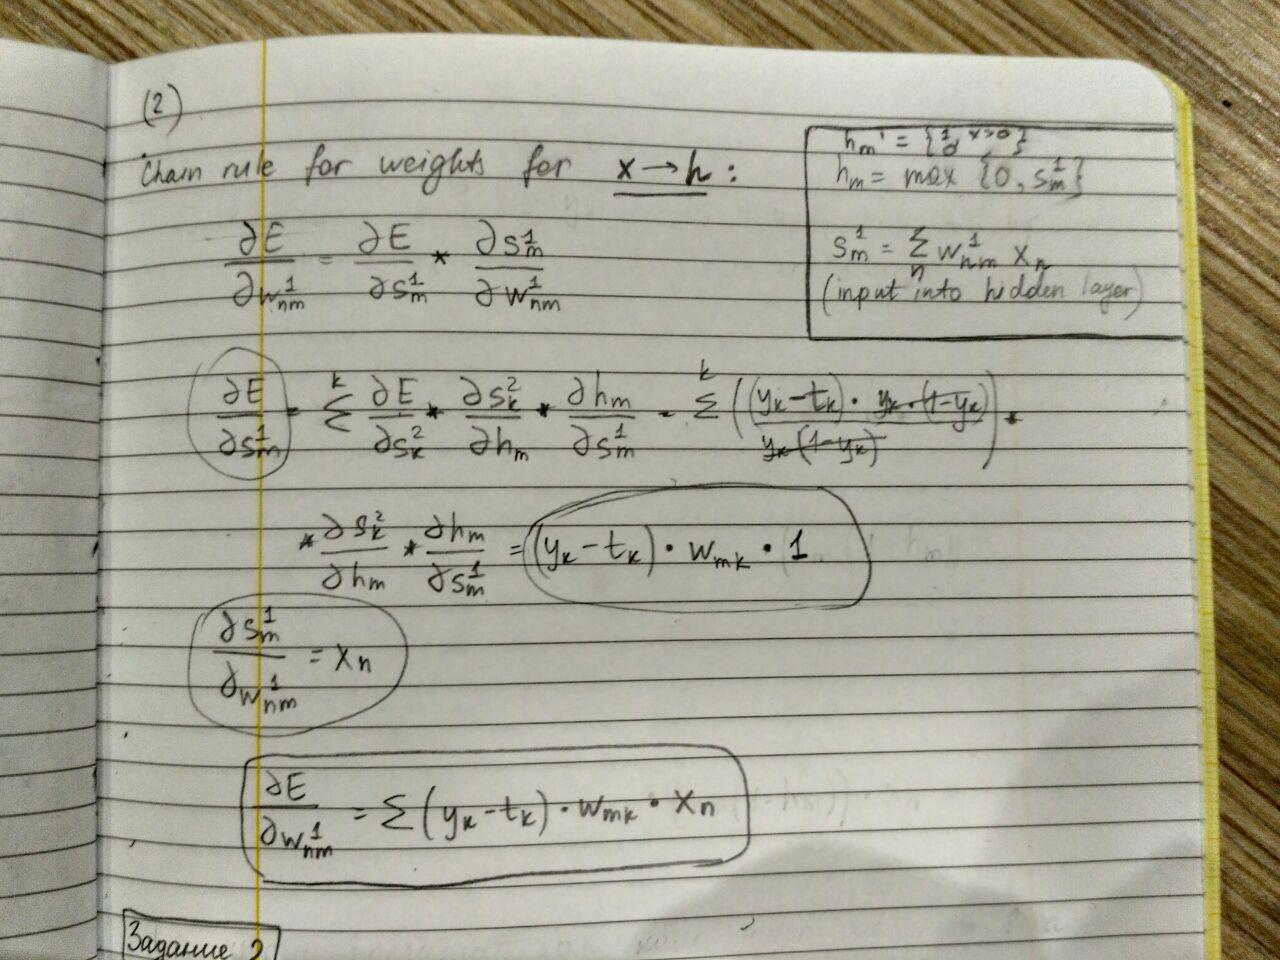 (2)
Chain rule for weights for x → h :
h_m' = { 1, x>0
0 , }
h_m = max {0, s_m^1}
s_m^1 = Σ_n w_nm^1 x_n
(input into hidden layer)
∂E/∂w_nm^1 = ∂E/∂s_m^1 * ∂s_m^1/∂w_nm^1
∂E/∂s_m^1 = Σ^k ∂E/∂s_k^2 * ∂s_k^2/∂h_m * ∂h_m/∂s_m^1 = Σ^k ( (y_k - t_k) · y_k · (1-y_k) / y_k (1-y_k) ) *
* ∂s_k^2/∂h_m * ∂h_m/∂s_m^1 = (y_k - t_k) · w_mk · 1
∂s_m^1/∂w_nm^1 = x_n
∂E/∂w_nm^1 = Σ (y_k - t_k) · w_mk · x_n
Задание 2